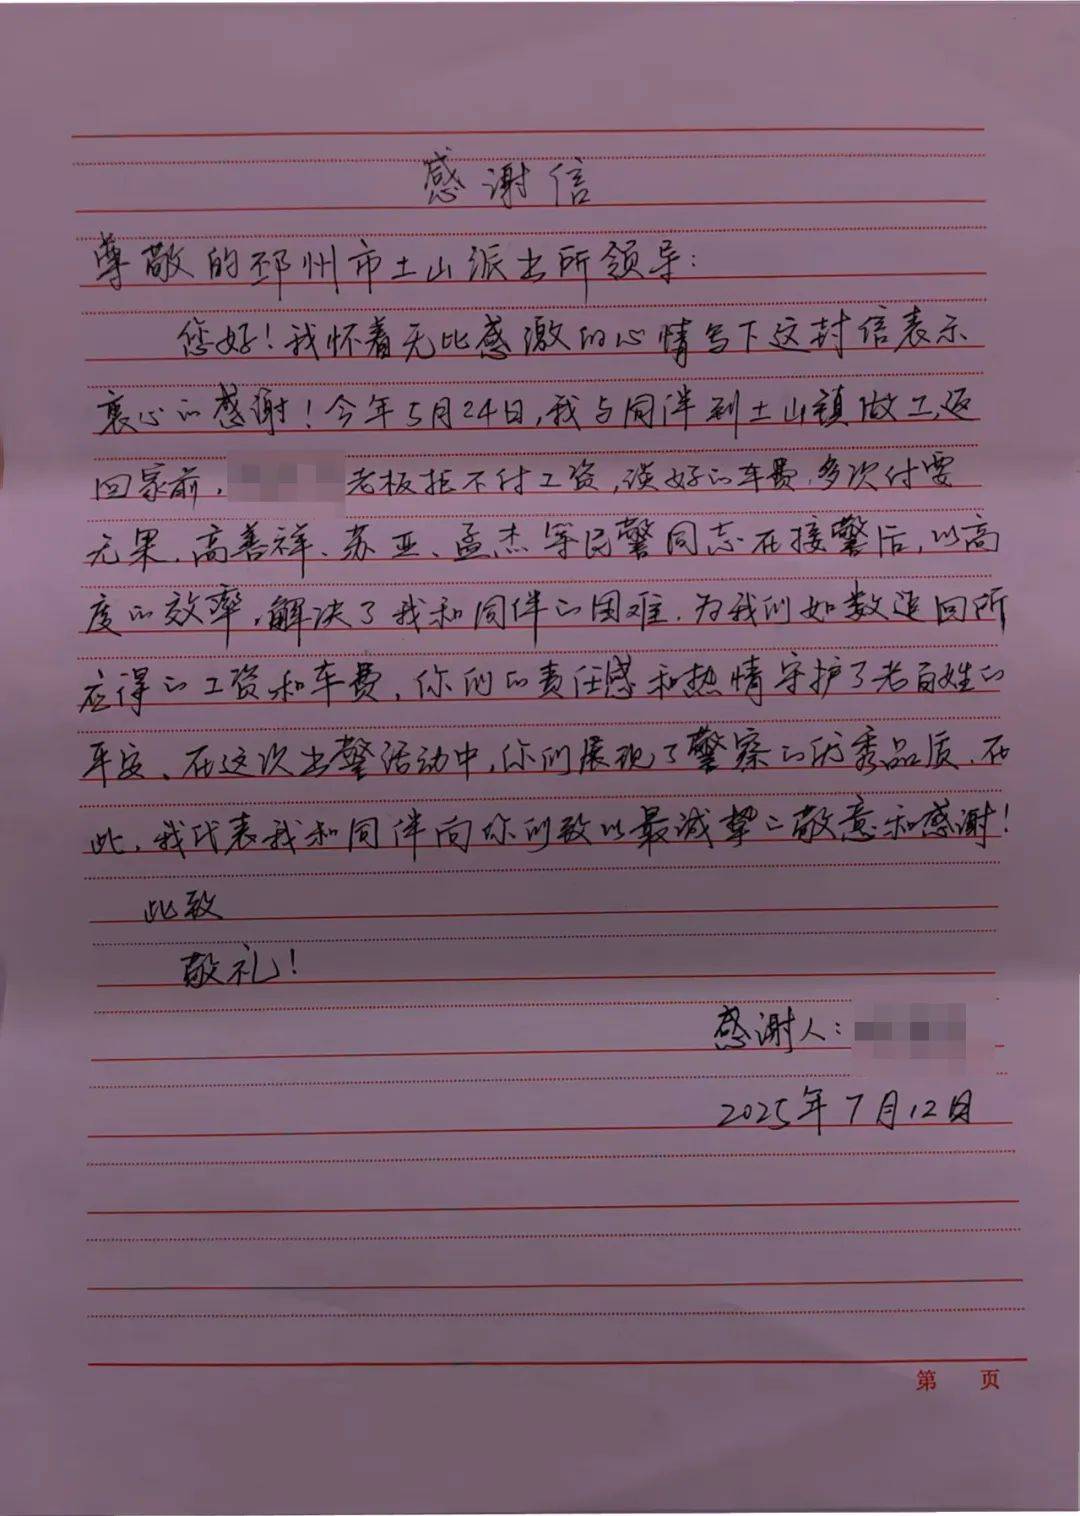 感谢信
尊敬的邳州市土山派出所领导:
您好!我怀着无比感激的心情写下这封信表示
衷心的感谢!今年5月24日,我与同伴到土山镇做工,返
回家前,老板拒不付工资,谈好的车费,多次付要
无果,高善祥、苏亚、孟杰等民警同志在接警后,以高
度的效率,解决了我和同伴的困难.为我们如数追回所
应得的工资和车费,你们的责任感和热情守护了老百姓的
平安、在这次出警活动中,你们展现了警察的优秀品质.在
此,我代表我和同伴向你们致以最诚挚的敬意和感谢!
此致
敬礼!
感谢人:
2025年7月12日
第 页